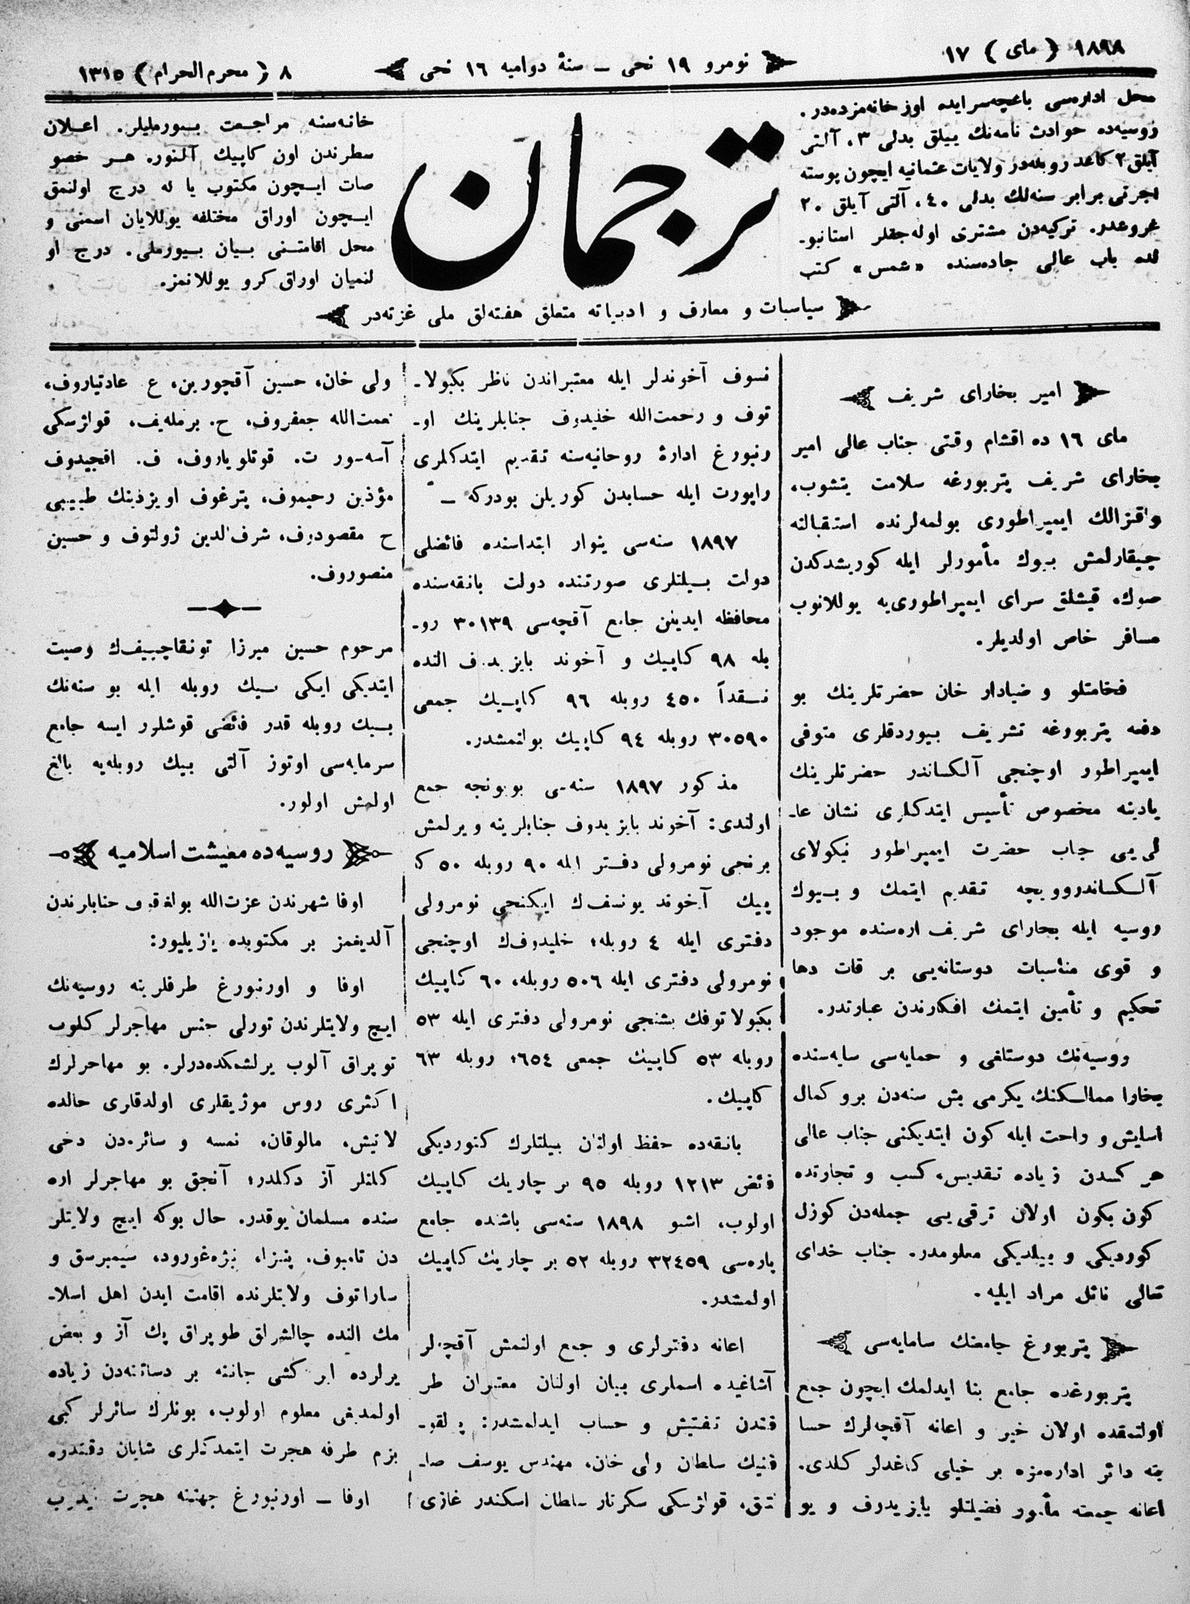 ١٨٩٨ (مای) ١٧
نومرو ١٩ نجی ــ سنهٔ دوامیه ١٦ نجی
٨ (محرم الحرام) ١٣١٥
محل اداره‌سی باغچه‌سرایده اوز خانه‌مزده‌در.
روسیه‌ده حوادث نامه‌نك ییللق بدلی ٣، آلتی
آیلق ٢ كاغد روبله‌در ولایات عثمانیه ایچون پوسته
اجرتی برابر سنه‌لك بدلی ٤٠، آلتی آیلق ٢٠
غروعدر. تركیه‌دن مشتری اوله‌جقلر استانبو-
لده باب عالی جاده‌سنده «شمس» كتب
ترجمان
خانه‌سنه مراجعت بیورملیلر. اعلان
سطرندن اون كاپیك آلنور. هر خصو
صات ایچون مكتوب یا له درج اولنمق
ایچون اوراق مختلفه یوللایان اسمنی و
محل اقامتنی بیان بیورملی. درج او
لنمیان اوراق كرو یوللانمز.
سیاسیات و معارف و ادبیاته متعلق هفته‌لق ملی غزته‌در
امیر بخارای شریف
مای ١٦ ده اقشام وقتی جناب عالی امیر
بخارای شریف پتربورغه سلامت یتشوب،
واقزالك ایمپراطوری بولمه‌لرنده استقبالنه
چیقارلمش بیوك مأمورلر ایله كوریشدكدن
صوك، قیشلق سرای ایمپراطوری‌یه یوللانوب
مسافر خاص اولدیلر.
فخامتلو و ضیادار خان حضرتلرینك بو
دفعه پتربورغه تشریف بیوردقلری متوفی
ایمپراطور اوچنجی آلكساندر حضرتلرینك
یادینه مخصوص تأسیس ایتدكلری نشان عا-
لی‌یی جناب حضرت ایمپراطور نیكولای
آلكساندروویچه تقدیم ایتمك و بیوك
روسیه ایله بخارای شریف اره‌سنده موجود
و قوی مناسبات دوستانه‌یی بر قات دها
تحكیم و تأمین ایتمك افكارندن عبارتدر.
روسیه‌نك دوستلغی و حمایه‌سی سایه‌سنده
بخارا ممالكنك یكرمی بش سنه‌دن برو كمال
اسایش و راحت ایله كون ایتدیكنی جناب عالی
هر كسدن زیاده تقدیس، كسب و تجارتده
كون بكون اولان ترقی‌یی جمله‌دن كوزل
كوردیكی و بیلدیكی معلومدر. جناب خدای
تعالی نائل مراد ایلیه.
پتربورغ جامعنك سامایه‌سی
پتربورغده جامع بنا ایدلمك ایچون جمع
اولنمقده اولان خیر و اعانه آقچه‌لرك حسا
بنه دائر اداره‌مزه بر خیلی كاغدلر كلدی.
اعانه جمعنه مأمور فضیلتلو بایزیدوف و یو
نسوف آخوندلر ایله معتبراندن ناظر بكبولا-
توف و رحمت‌الله خلیدوف جنابلرینك او-
رنبورغ ادارهٔ روحانیه‌سنه تقدیم ایتدكلری
راپورت ایله حسابدن كوریلن بودركه ــ
١٨٩٧ سنه‌سی ینوار ابتداسنده فائضلی
دولت بیلتلری صورتنده دولت بانقه‌سنده
محافظه ایدیلن جامع آقچه‌سی ٣٠١٣٩ رو-
بله ٩٨ كاپیك و آخوند بایزیدوف النده
نقداً ٤٥٠ روبله ٩٦ كاپیك جمعی
٣٠٥٩٠ روبله ٩٤ كاپیك بولنمشدر.
مذكور ١٨٩٧ سنه‌سی بویونجه جمع
اولندی: آخوند بایزیدوف جنابلرینه ویرلمش
برنجی نومرولی دفتر ایله ٩٠ روبله ٥٠ كا
پیك آخوند یونسف‌ك ایكنجی نومرولی
دفتری ایله ٤ روبله؛ خلیدوف‌ك اوچنجی
نومرولی دفتری ایله ٥٠٦ روبله، ٦٠ كاپیك
بكبولاتوفك بشنجی نومرولی دفتری ایله ٥٣
روبله ٥٣ كاپیك جمعی ٦٥٤؛ روبله ٦٣
كاپیك.
بانقه‌ده حفظ اولنان بیلتلرك كتوردیكی
فائض ١٢١٣ روبله ٩٥ بر چاریك كاپیك
اولوب، اشبو ١٨٩٨ سنه‌سی باشنده جامع
پاره‌سی ٣٢٤٥٩ روبله ٥٢ بر چاریك كاپیك
اولمشدر.
اعانه دفترلری و جمع اولنمش آقچه‌لر
آشاغیده اسملری بیان اولنان معتبران طر
فندن تفتیش و حساب ایدلمشدر: پولقو-
فنیك سلطان ولی خان، مهندس یوسف صا-
قواژسكی سكرتار سلطان اسكندر غازی
ولی خان، حسین آقچورین، ع عادتیاروف،
نعمت‌الله جعفروف، ح. برمله‌یف، قواژسكی
آسه‌سور ت. قوتلویاروف، ف. افجیدوف
مؤذین رحیموف، پترغوف اویزدینك طبیبی
ح مقصودوف، شرف‌الدین ژولتوف و حسین
منصوروف.
مرحوم حسین میرزا تونقاچییف‌ك وصیت
ایتدیكی ایكی بیك روبله ایله بو سنه‌نك
بیك روبله قدر فائضی قوشلور ایسه جامع
سرمایه‌سی اوتوز آلتی بیك روبله‌یه بالغ
اولمش اولور.
روسیه‌ده معیشت اسلامیه
اوفا شهرندن عزت‌الله بولغقوف جنابلرندن
آلدیغمز بر مكتوبده یازیلیور:
اوفا و اورنبورغ طرفلرینه روسیه‌نك
ایچ ولایتلرندن تورلی جنس مهاجرلر كلوب
توپراق آلوب یرلشمكده‌درلر. بو مهاجرلرك
اكثری روس موژیقلری اولدقلری حالده
لاتیش، مالوقان، نمسه و سائره‌دن دخی
كلنلر آز دكلدر؛ آنجق بو مهاجرلر اره
سنده مسلمان یوقدر. حال بوكه ایچ ولایتلر
دن تامبوف، پینزا، نیژه‌غورود، سیمبرسق و
ساراتوف ولایتلرنده اقامت ایدن اهل اسلا-
مك النده چالشرلق طوپراق پك آز و بعض
یرلرده ایر كشی جاننه بر دساتنه‌دن زیاده
اولمدیغی معلوم اولوب، بونلرك سائرلر كبی
بزم طرفه هجرت ایتمدكلری شایان دقتدر.
اوفا ــ اورنبورغ جهتنه هجرت